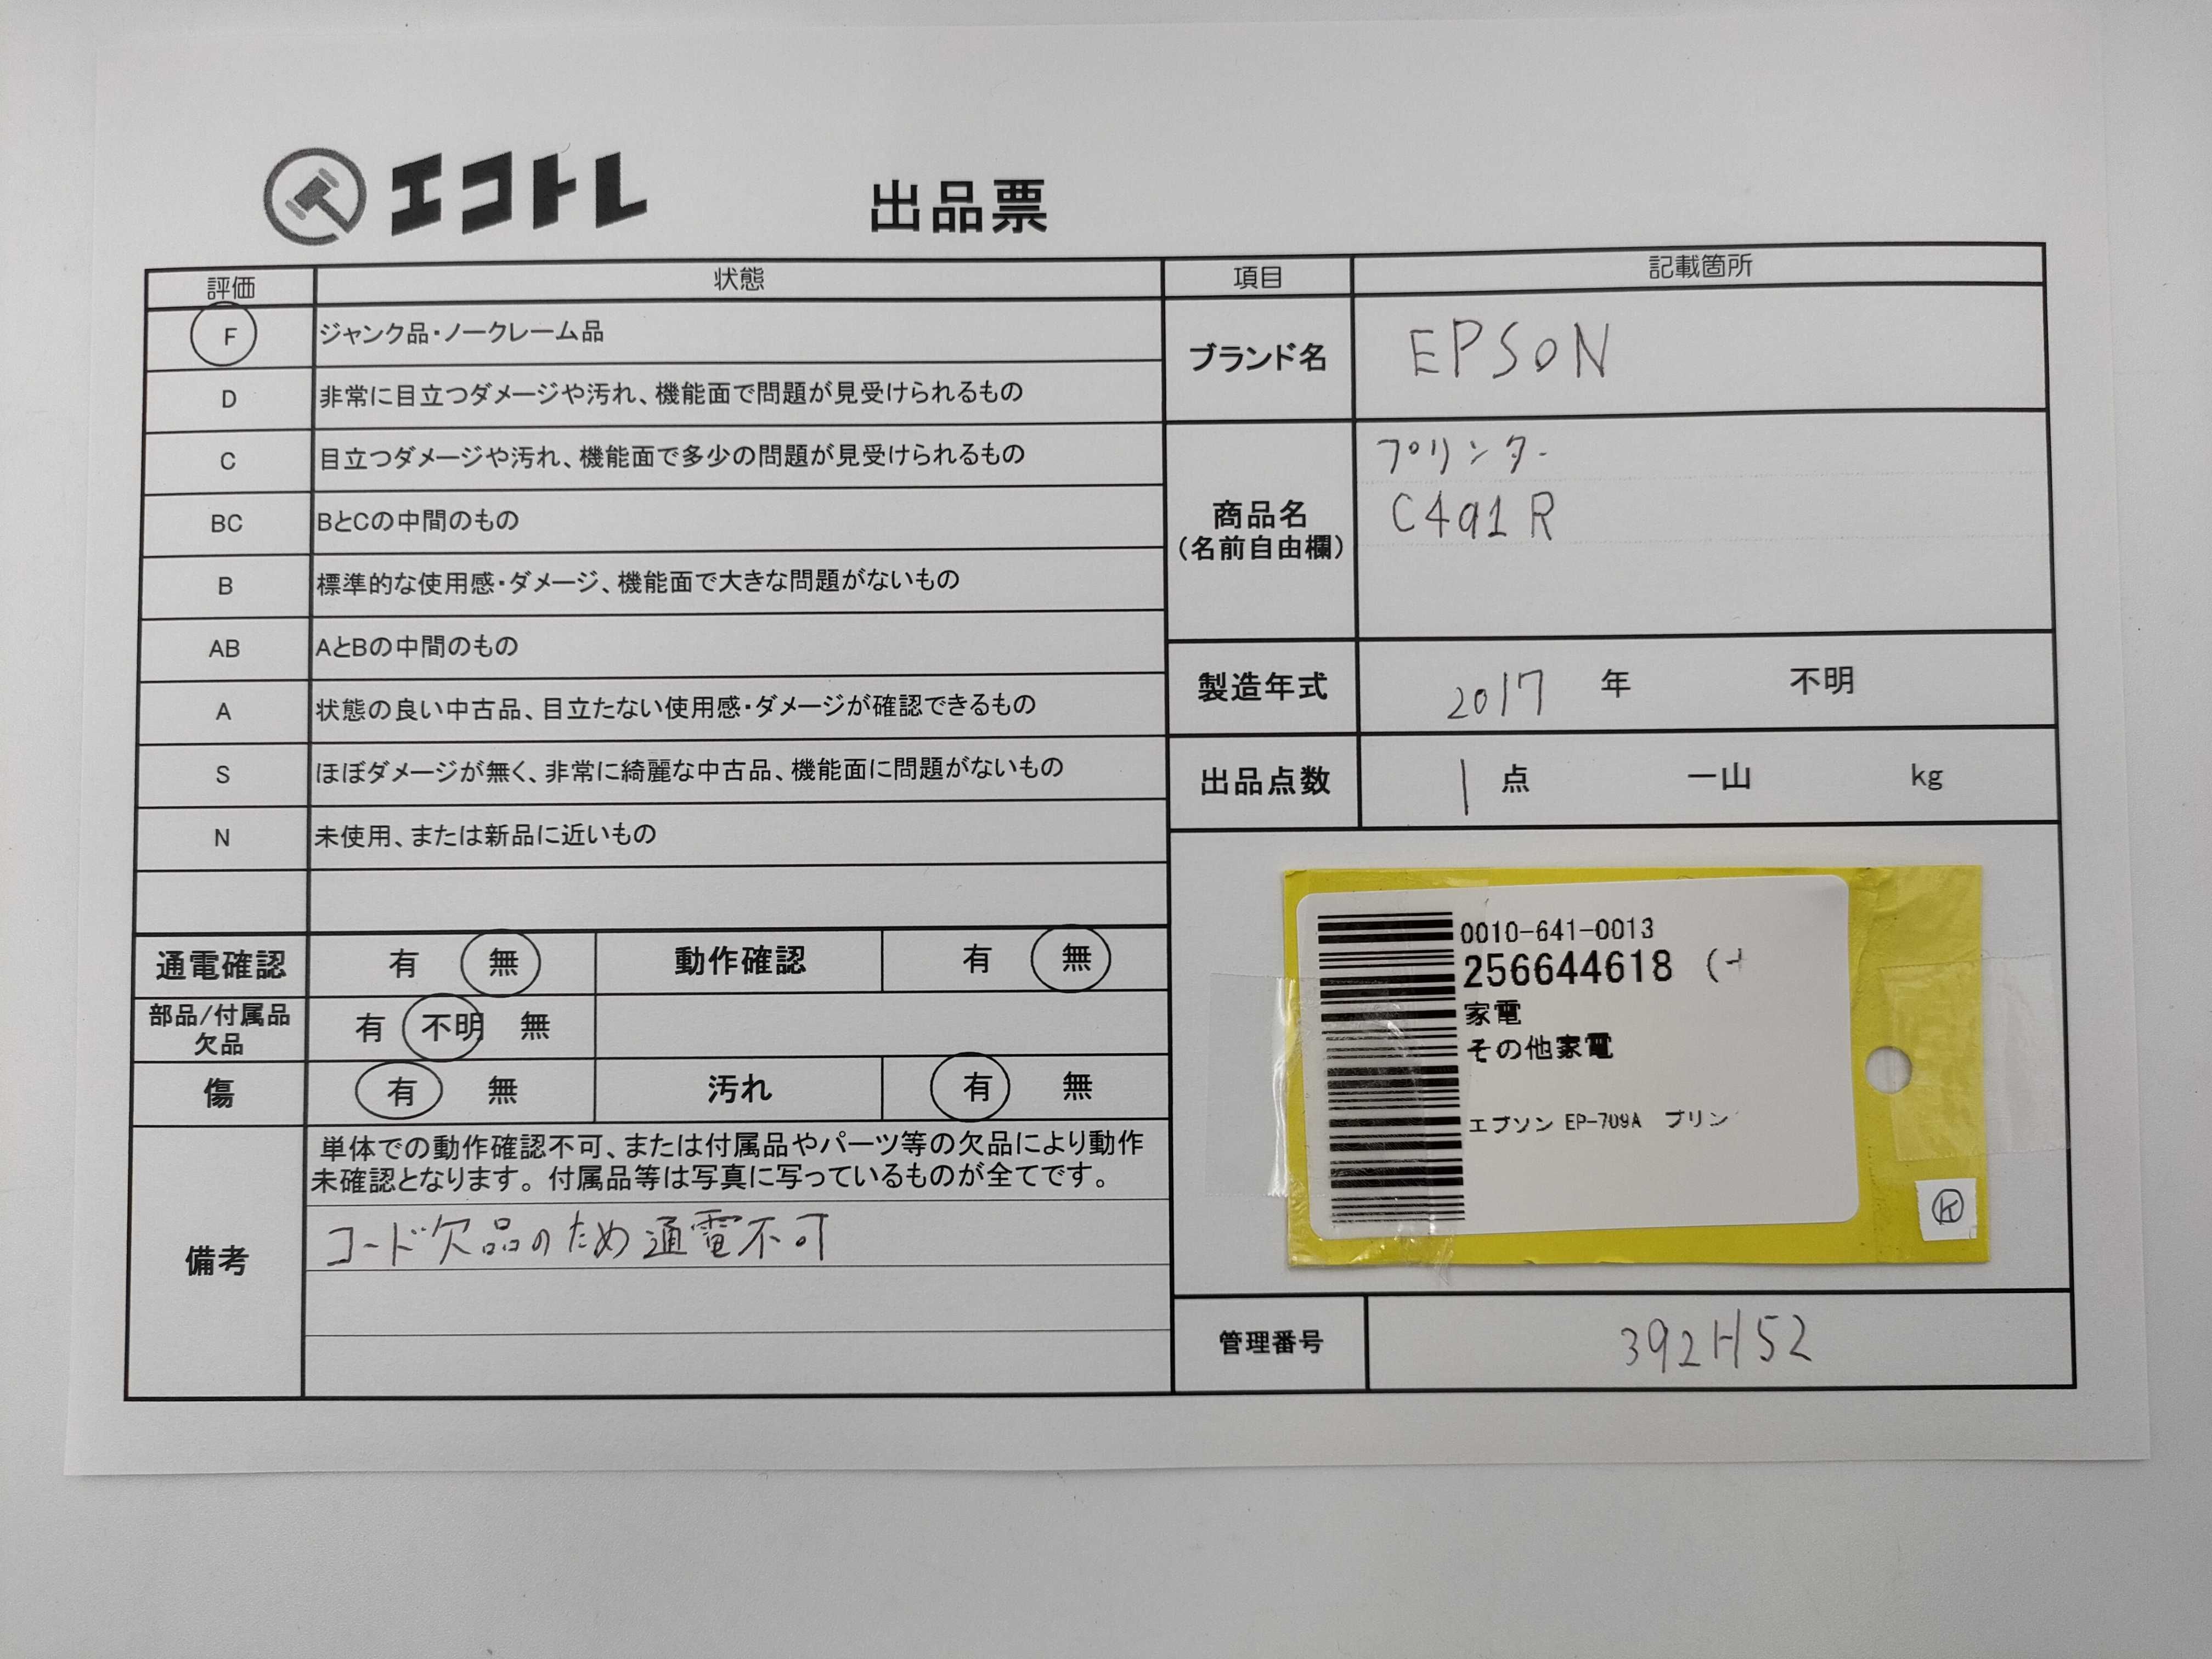 エコトレ
出品票
評価 状態
F ジャンク品・ノークレーム品
D 非常に目立つダメージや汚れ、機能面で問題が見受けられるもの
C 目立つダメージや汚れ、機能面で多少の問題が見受けられるもの
BC BとCの中間のもの
B 標準的な使用感・ダメージ、機能面で大きな問題がないもの
AB AとBの中間のもの
A 状態の良い中古品、目立たない使用感・ダメージが確認できるもの
S ほぼダメージが無く、非常に綺麗な中古品、機能面に問題がないもの
N 未使用、または新品に近いもの
通電確認 有 無 動作確認 有 無
部品/付属品
欠品
有 不明 無
傷 有 無 汚れ 有 無
備考
単体での動作確認不可、または付属品やパーツ等の欠品により動作
未確認となります。付属品等は写真に写っているものが全てです。
コード欠品のため通電不可
項目 記載箇所
ブランド名 EPSON
商品名
(名前自由欄)
プリンター
C491R
製造年式 2017 年 不明
出品点数 1 点 一山 kg
0010-641-0013
256644618
家電
その他家電
エプソン EP-709A プリン
K
管理番号 392H52